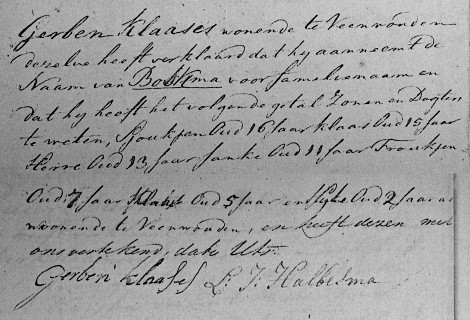 Gerben Klaases wonende te Veenwouden
dezelve heeft verklaard dat hy aanneemt de
Naam van Bosma voor familienaam en
dat hy heeft het volgende getal Zonen en Dogters
te weten, Sjoukjen Oud 16 Jaar Klaas Oud 15 Jaar
Herre Oud 13 Jaar Janke Oud 11 Jaar Froukjen
Oud 7 Jaar Oud 5 Jaar en Oud 2 Jaar
wonende te Veenwouden, en heeft dezen met
ons vertekend, dato Uts.
Gerben Klaases L: J: Halbesma